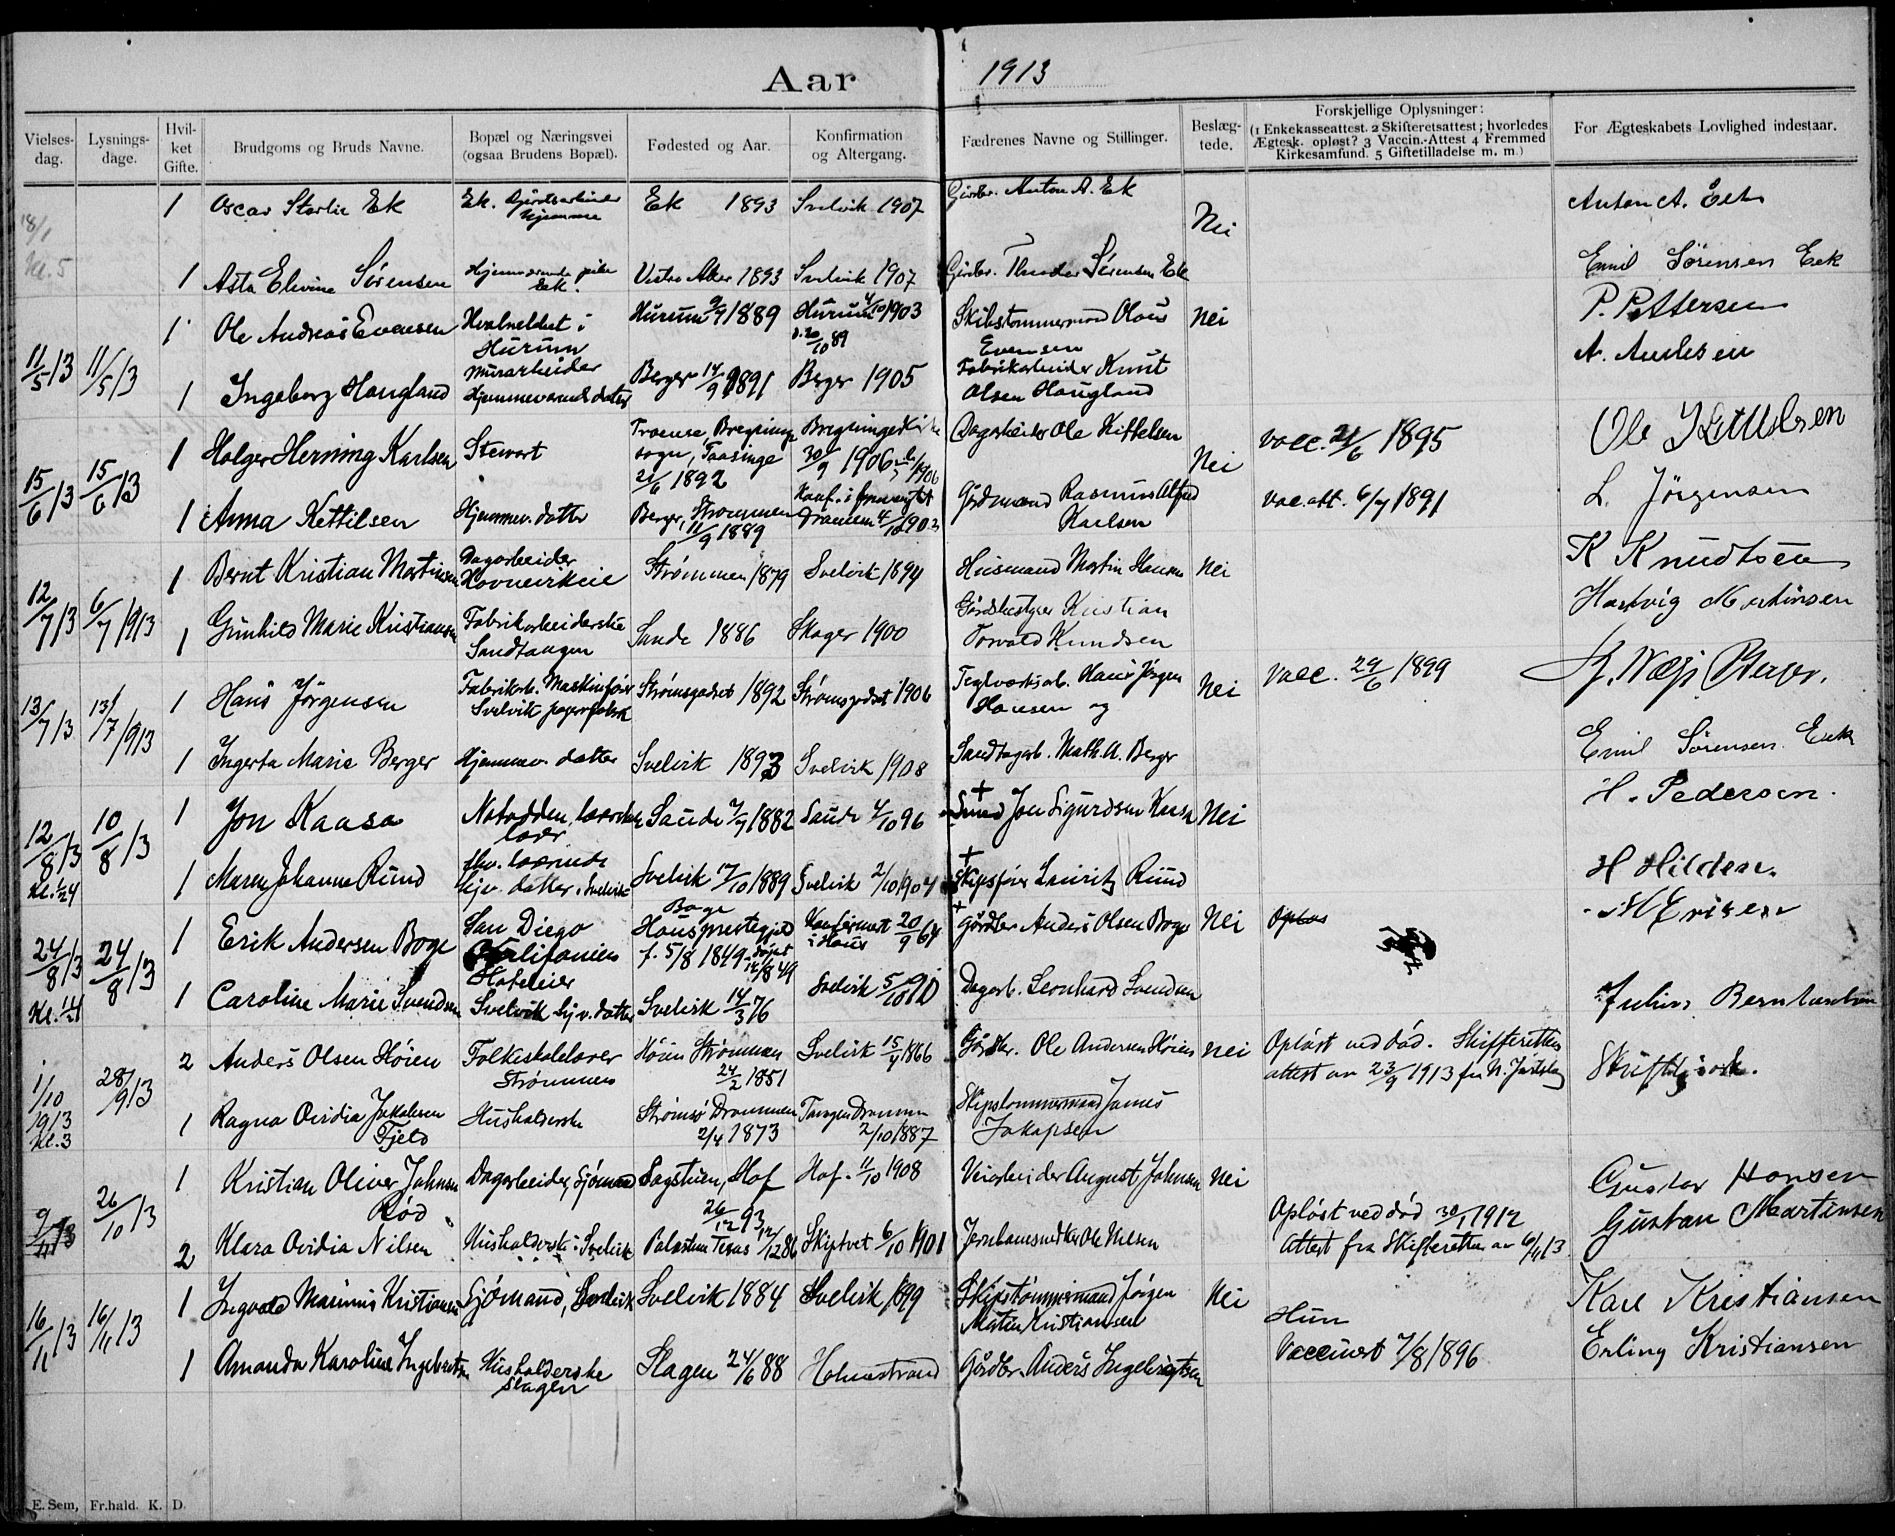 Aar 1913
Vielses-dag. Lysnings-dage. Hvil-ket Gifte. Brudgoms og Bruds Navne. Bopæl og Næringsvei (ogsaa Brudens Bopæl). Fødested og Aar. Konfirmation og Altergang. Fædrenes Navne og Stillinger. Beslæg-tede. Forskjellige Oplysninger: (1 Enkekasseattest. 2 Skifteretsattest; hvorledes Ægtesk. opløst? 3 Vaccin.-Attest 4 Fremmed Kirkesamfund. 5 Giftetilladelse m. m.) For Ægteskabets Lovlighed indestaar.
18/1 Kl. 5
1 Oscar Ek Ek. Hjemme Ek 1893 Svelvik 1907 Gårdbr. Anton A. Ek Nei Anton A. Eek
1 Asta Elvine Sørensen Hjemmeværende pike Ek. Vestre Aker 1893 Svelvik 1907 Gårdbr. Theodor Sørensen Ek Emil Sørensen Eek
11/5 13 11/5 13
1 Ole Andreas Evensen Hurum Murarbeider Hurum 9/7 1889 Hurum 4/10 1903 Skibstømmermand Olaus Evensen Nei P. Pettersen
1 Ingeborg Haugland Hjemmeværende datter Berger 14/9 1891 Berger 1905 Fabrikarbeider Knut Olsen Haugland
15/6 13 15/6 13
1 Holger Herning Karlsen Stewart Troense, Bregninge sogn, Taasinge 21/6 1892 Bregninge Kirke 30/9 1906 Dagarbeider Ole Kittelsen Nei Vacc. 21/6 1895 Ole Kittilsen
1 Anna Kettilsen Hjemmev. datter Berger, Strømmen 11/9 1889 Konf. i Drammen 4/10 1903 Gårdmand Rasmus Alfred Karlsen Vac.att. 6/7 1891 L. Jörgensen
12/7 13 6/7 1913
1 Bernt Kristian Martinsen Dagarbeider Strømmen 1879 Svelvik 1894 Husmand Martin Hansen Nei K Knudtsen
1 Gunhild Marie Kristiansen Fabrikarbeiderske Sandtangen Sande 1886 Skoger 1900 Gårdsbestyrer Kristian Torvald Knudsen Hartvig Martinsen
13/7 13 13/7 1913
1 Hans Jörgensen Fabrikarb. Maskinfører Svelvik papirfabrik Strømsgodset 1892 Strømsgodset 1906 Teglverksarb. Hans Jørgen Hansen og Nei Vacc. 29/6 1899
1 Ingerta Marie Berger Hjemmev. datter Svelvik 1893 Svelvik 1908 Sandtagarb. Math. A. Berger Emil Sörensen Eek
12/8 13 Kl. 1/2 4 10/8 13
1 Jon Kaasa Notodden, Saude 7/7 1882 Saude 4/10 96 + Smed Jon Sigurdsen Kaasa Nei H. Pedersen.
1 Maren Johanne Rund Hjv. datter, Svelvik Svelvik 17/10 1889 Svelvik 2/10 1904 + Skipsfører Lauritz Rund H Hilden.
24/8 13 24/8 13
1 Erik Andersen Boge San Diego Kalifonien Hoteleier Boge Hausprestegjeld f. 5/8 1849 døpt 12/8 49 Konfirmert i Haus 20/9 64 + Gårdbr Anders Olsen Boge Nei Opløs
1 Caroline Marie Svendsen Svelvik hjv. datter Svelvik 14/3 76 Svelvik 5/10 90 Dagarb. Leonhard Svendsen Julius Berntsen
1/10 1913 Kl. 3 28/9 13
2 Anders Olsen Höien Folkeskolelærer Strømmen Höien Strømmen 24/2 1851 Svelvik 15/4 1866 Gårdbr. Ole Andersen Høien Nei Opløst ved død. Skifteretten attest av 23/9 1913 fra N. Jarlsberg
1 Ragna Ovidia Jakobsen Fjeld Husholderske Strømsø Drammen 2/4 1873 Tangen Drammen 2/10 1887 Skipstømmermand James Jakopsen
9/11 13 26/10 13
1 Kristian Oliver Johnsen Rød Dagarbeider, Sjømand Sagstuen, Hof 26/12 93 Hof. 11/10 1908 Veiarbeider August Johnsen Nei Gustav Hansen
2 Klara Ovidia Nilsen Husholderske Svelvik Palestine Texas 12/12 86 Skiptvet 6/10 1901 Jernbanesmed Ole Nilsen Opløst ved død 30/1 1912 Attest fra Skifteretten av 6/11 13 Gustav Martinsen
16/11 13 16/11 13
1 Ingvald Marinius Kristiansen Sjømand, Svelvik Svelvik 1884 Svelvik 1899 Skipstømmermand Jörgen Martin Kristiansen Nei Karl Kristiansen
1 Amanda Karoline Ingebretsen Husholderske Slagen Slagen 24/6 88 Holmestrand Gårdbr. Anders Ingebrigtsen Hun Vaccinert 7/8 1896 Erling Kristiansen
E. Sem, Fr.hald. K. D.